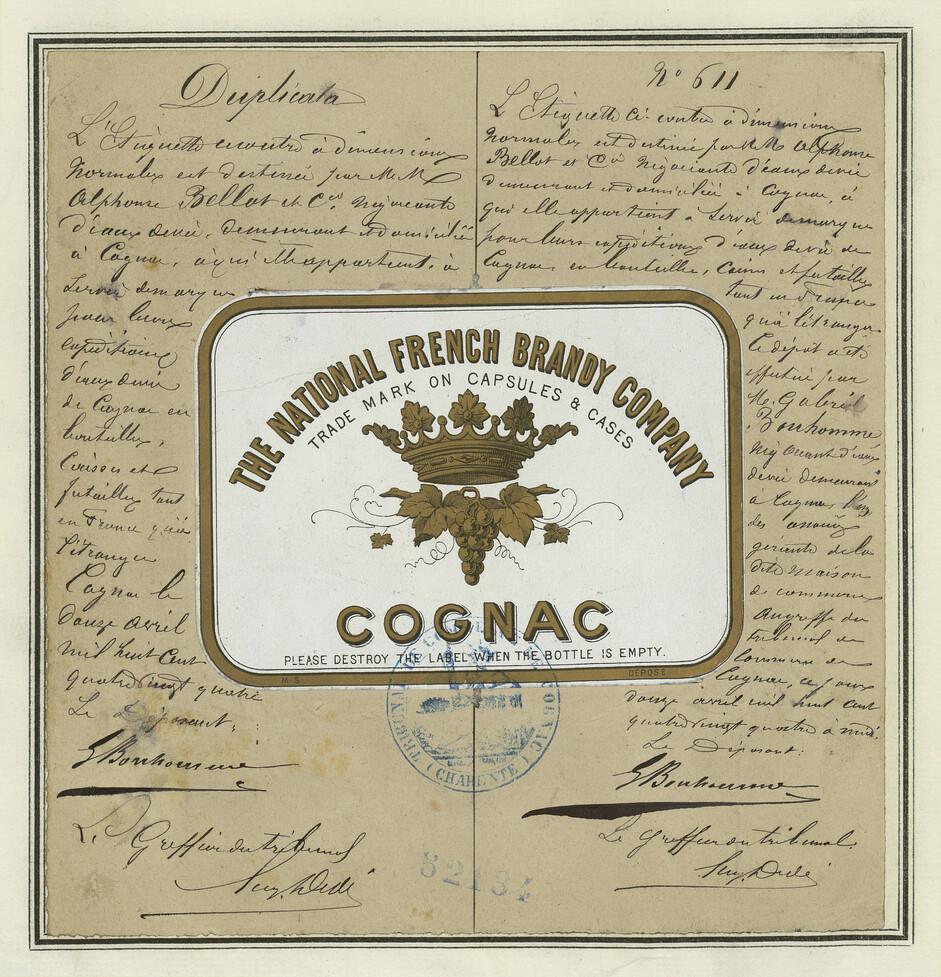 Duplicata
L'Etiquette ci contre à dimensions
normales est destinée par M.M.
Alphonse Bellot et Cie Négociants
d'eaux de vie, demeurant et domiciliés
à Cognac, à qui elle appartient, à
servir de marque
pour leurs
expéditions
d'eaux de vie
de Cognac en
bouteilles,
Caisses et
futailles tant
en France qu'à
l'étranger
Cognac le
douze avril
mil huit cent
quatre vingt quatre
Le Déposant,
GBonhomme
Le Greffier du tribunal
No 611
L'Etiquette ci contre à dimensions
normales est destinée par M.M. Alphonse
Bellot et Cie Négociants d'eaux de vie
demeurant et domiciliés à Cognac, à
qui elle appartient à servir de marque
pour leurs expéditions d'eaux de vie de
Cognac en bouteilles, Caisses et futailles
tant en France
qu'à l'étranger
Le dépôt a été
effectué par
M. Gabriel
Bonhomme
Négociant d'eaux
de vie demeurant
à Cognac l'un
des associés
gérants de la
dite maison
de commerce
au greffe du
tribunal de
Commerce de
Cognac, ce jour
douze avril mil huit cent
quatre vingt quatre à midi.
Le Déposant:
GBonhomme
Le Greffier du tribunal.
THE NATIONAL FRENCH BRANDY COMPANY
TRADE MARK ON CAPSULES & CASES
COGNAC
PLEASE DESTROY THE LABEL WHEN THE BOTTLE IS EMPTY.
M. S. DÉPOSÉ
TRIBUNAL DE COMMERCE DE COGNAC
(CHARENTE)
52134